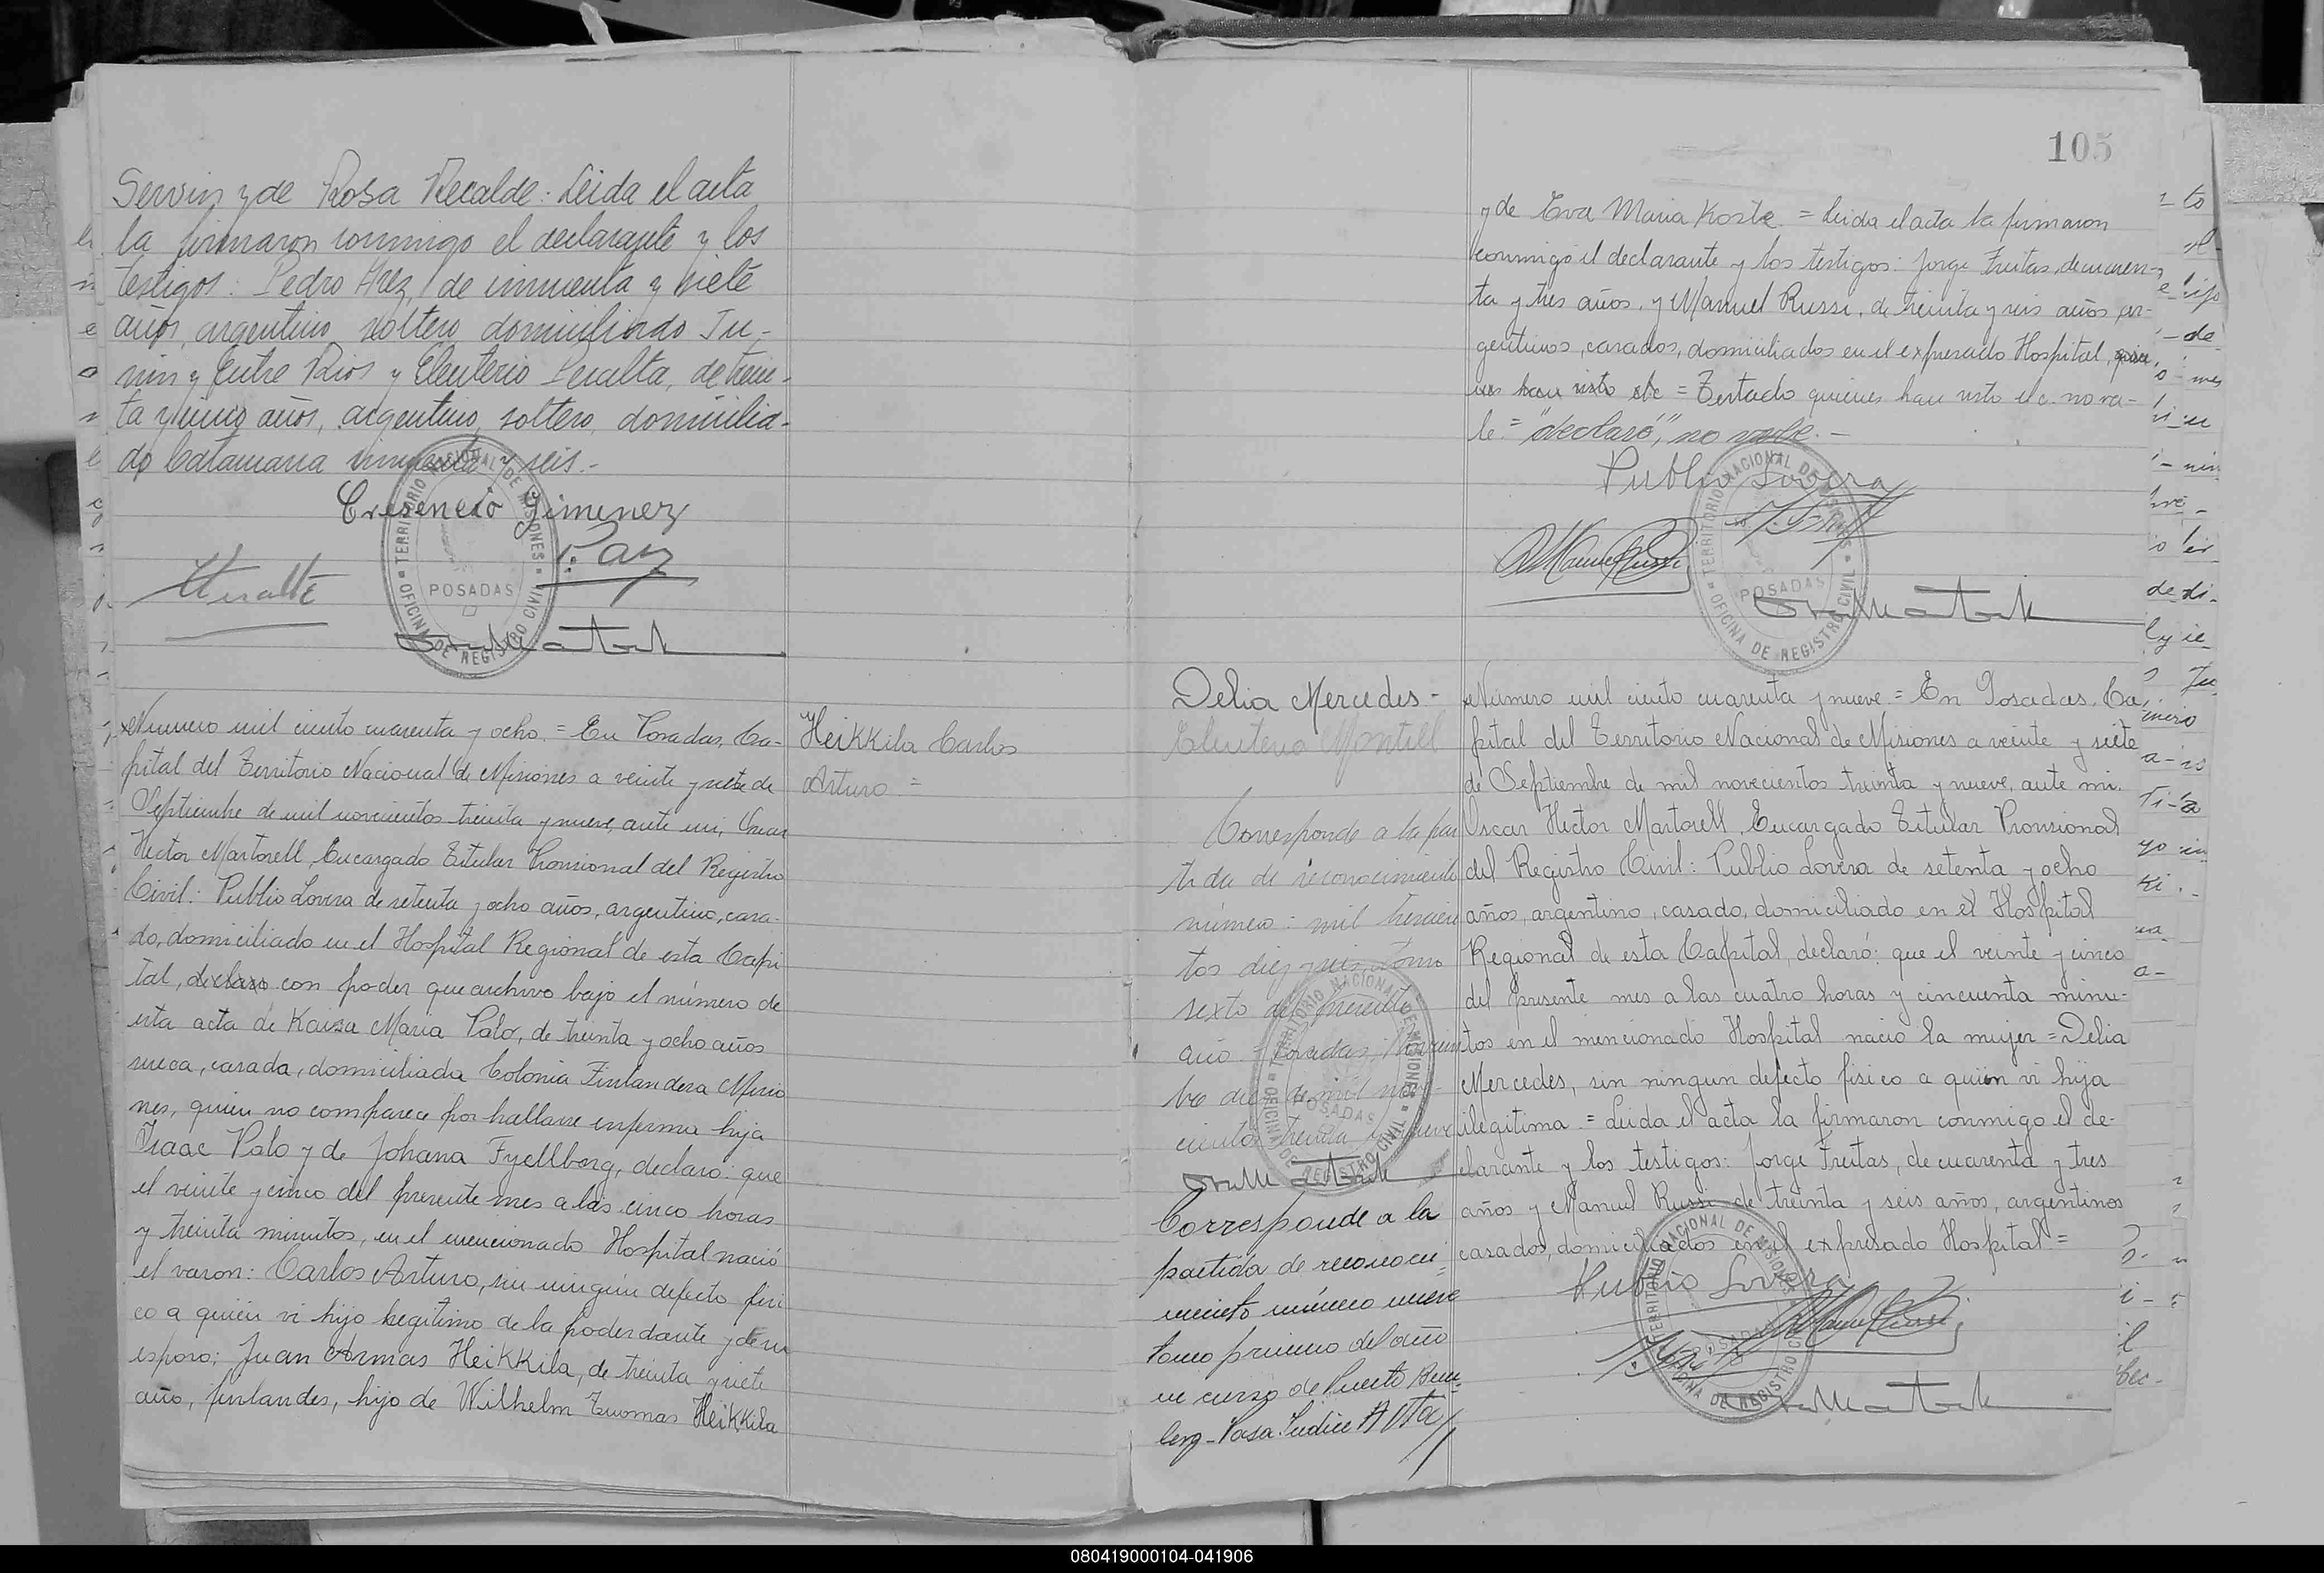 Servin y de Rosa Recalde: Leida el acta
la firmaron conmigo el declarante y los
testigos: Pedro Paez, de cincuenta y siete
años, argentino, soltero, domiciliado Ju-
nin y Entre Rios y Eleuterio Peralta, de trein-
ta y cinco años, argentino, soltero, domicilia-
do Catamarca cincuenta y seis.-
Cresencio Gimenez
P. Paez
TERRITORIO NACIONAL DE MISIONES
POSADAS
OFICINA DE REGISTRO CIVIL
Heikkila Carlos
Arturo =
Numero mil ciento cuarenta y ocho. = En Posadas, Ca-
pital del Territorio Nacional de Misiones a veinte y siete de
Septiembre de mil novecientos treinta y nueve, ante mi, Oscar
Hector Martorell, Encargado Titular Provisional del Registro
Civil: Publio Lovera de setenta y ocho años, argentino, casa-
do, domiciliado en el Hospital Regional de esta Capi
tal, declaro con poder que archivo bajo el número de
esta acta de Kaisa Maria Palo, de treinta y ocho años
sueca, casada, domiciliada Colonia Finlandesa Misio
nes, quien no comparece por hallarse enferma hija
Isaac Palo y de Johana Fyellborg, declaro: que
el veinte y cinco del presente mes a las cinco horas
y treinta minutos, en el mencionado Hospital nació
el varon: Carlos Arturo, sin ningún defecto fisi
co a quien vi hijo legitimo de la poderdante y de su
esposo: Juan Armas Heikkila, de treinta y siete
año, finlandes, hijo de Wilhelm Tuomas Heikkila
105
y de Eva Maria Koste = Leida el acta la firmaron
conmigo el declarante y los testigos: Jorge Freitas, de cuaren-
ta y tres años, y Manuel Russi, de treinta y seis años, ar-
gentinos, casados, domiciliados en el expresado Hospital, quie
nes han visto etc = Testado quienes han visto etc. no va-
le = "declaró", no vale. -
Publio Lovera
TERRITORIO NACIONAL DE MISIONES
POSADAS
OFICINA DE REGISTRO CIVIL
Delia Mercedes -
Eleuteria Montiel
Corresponde a la par
tida de reconocimiento
número: mil trescien
tos diez y seis, tomo
sexto del presente
año = Posadas, Noviem
bre diez de mil nove-
cientos treinta y nueve
Corresponde a la
partida de reconoci
miento número nueve
tomo primero del año
en curso de Puerto
Número mil ciento cuarenta y nueve = En Posadas, Ca-
pital del Territorio Nacional de Misiones a veinte y siete
de Septiembre de mil novecientos treinta y nueve, ante mi,
Oscar Hector Martorell, Encargado Titular Provisional
del Registro Civil: Publio Lovera de setenta y ocho
años, argentino, casado, domiciliado en el Hospital
Regional de esta Capital, declaró: que el veinte y cinco
del presente mes a las cuatro horas y cincuenta minu-
tos en el mencionado Hospital nació la mujer = Delia
Mercedes, sin ningun defecto fisico a quien vi hija
ilegitima. = Leida el acta la firmaron conmigo el de-
clarante y los testigos: Jorge Freitas, de cuarenta y tres
años y Manuel Russi de treinta y seis años, argentinos
casados, domiciliados en el expresado Hospital =
Publio Lovera
TERRITORIO NACIONAL DE MISIONES
POSADAS
OFICINA DE REGISTRO CIVIL
080419000104-041906